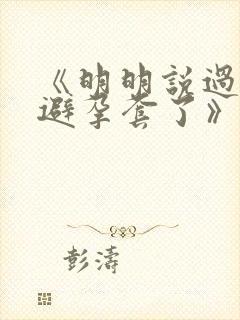 《明明說過
避孕套了》
彭濤